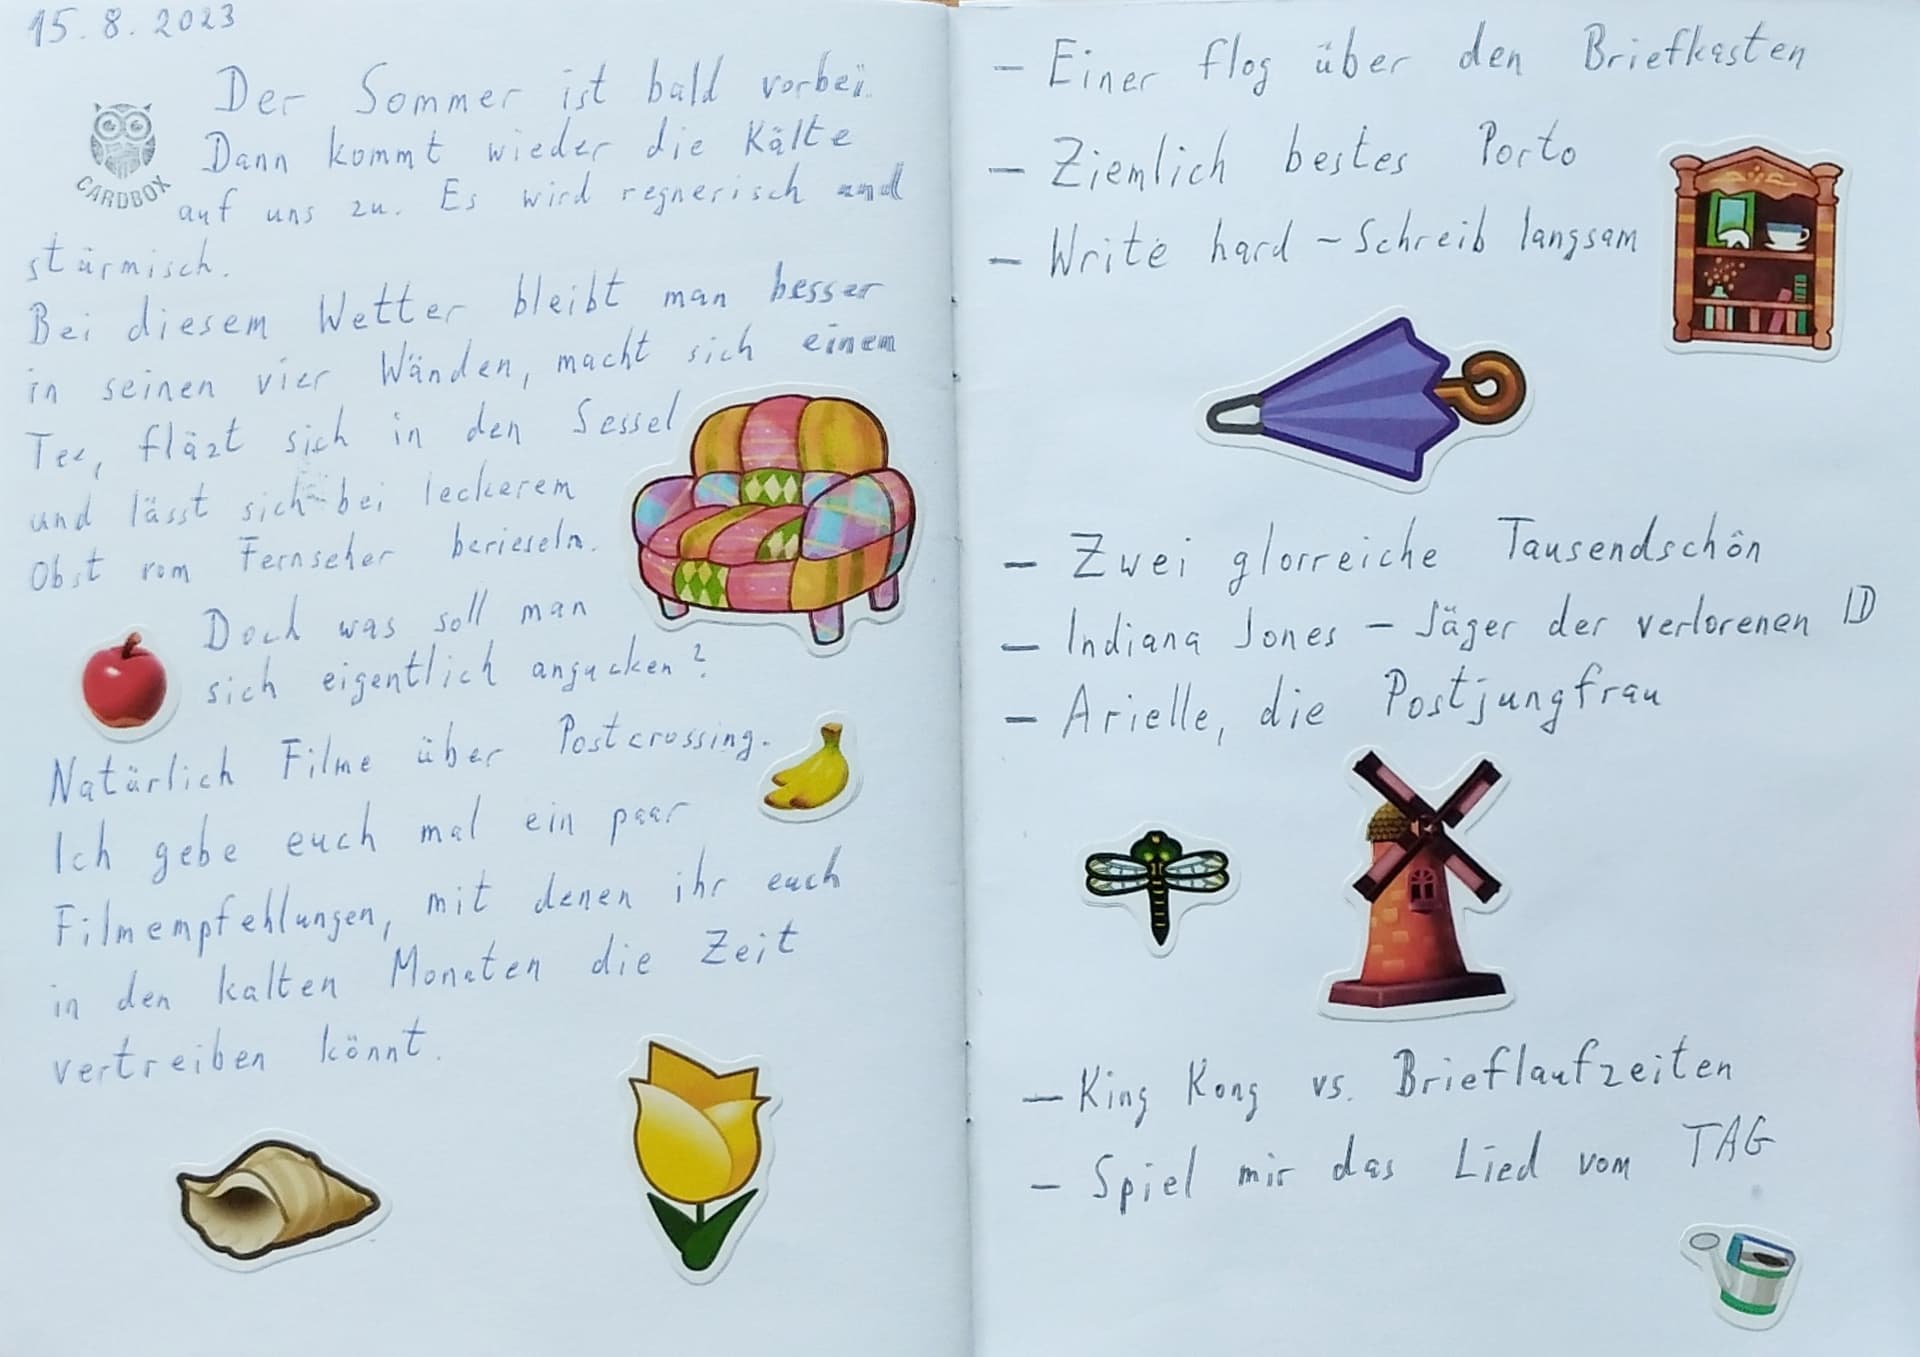 15.8.2023
Der Sommer ist bald vorbei.
Dann kommt wieder die Kälte
auf uns zu. Es wird regnerisch und
stürmisch.
CARDBOX
Bei diesem Wetter bleibt man besser
in seinen vier Wänden, macht sich einem
Tee, fläzt sich in den Sessel
und lässt sich bei leckerem
Obst vom Fernseher berieseln.
Doch was soll man
sich eigentlich angucken?
Natürlich Filme über Postcrossing.
Ich gebe euch mal ein paar
Filmempfehlungen, mit denen ihr euch
in den kalten Monaten die Zeit
vertreiben könnt.
- Einer flog über den Briefkasten
- Ziemlich bestes Porto
- Write hard - Schreib langsam
- Zwei glorreiche Tausendschön
- Indiana Jones - Jäger der verlorenen ID
- Arielle, die Postjungfrau
- King Kong vs. Brieflaufzeiten
- Spiel mir das Lied vom TAG